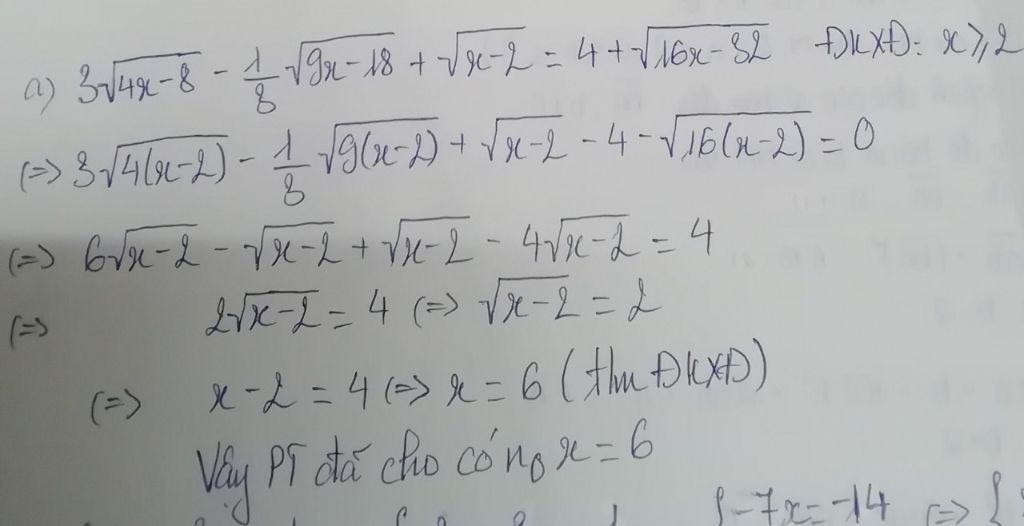 a) 3√(4x-8) - 1/3 √(9x-18) + √(x-2) = 4 + √(16x-32) ĐKXĐ: x ≥ 2
(=>) 3√(4(x-2)) - 1/3 √(9(x-2)) + √(x-2) - 4 - √(16(x-2)) = 0
(=>) 6√(x-2) - √(x-2) + √(x-2) - 4√(x-2) = 4
(=>) 2√(x-2) = 4 (=>) √(x-2) = 2
(=>) x-2 = 4 (=>) x = 6 (thm ĐKXĐ)
Vậy PT đã cho có no x = 6
{-7x = -14 (=>) {